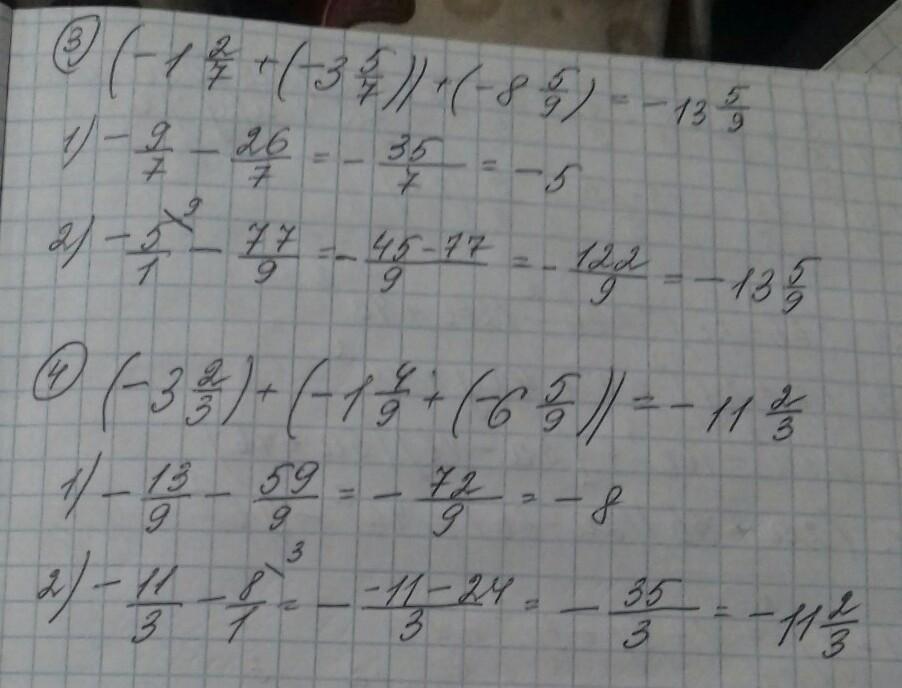 ③ (-1 2/7 + (-3 5/7)) + (-8 5/9) = -13 5/9
1) - 9/7 - 26/7 = - 35/7 = -5
2) - 5/1 \9 - 77/9 = - 45-77/9 = - 122/9 = -13 5/9
④ (-3 2/3) + (-1 4/9 + (-6 5/9)) = -11 2/3
1) - 13/9 - 59/9 = - 72/9 = -8
2) - 11/3 - 8/1 \3 = - -11-24/3 = - 35/3 = -11 2/3